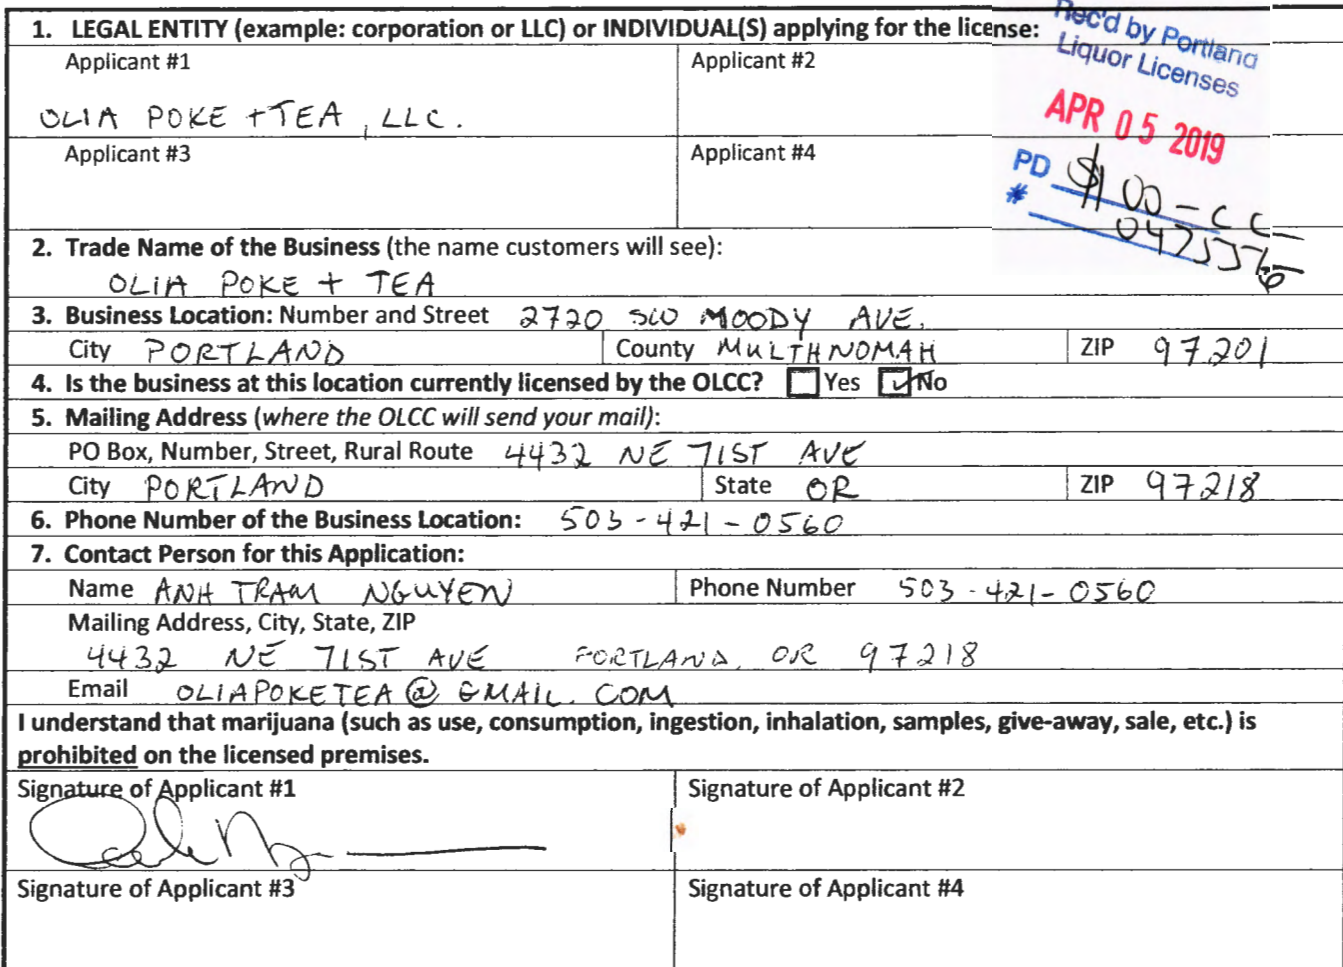 1. LEGAL ENTITY (example: corporation or LLC) or INDIVIDUAL(S) applying for the license:
Rec'd by Portland
Liquor Licenses
APR 05 2019
PD $100-CC
#
Applicant #1
Applicant #2
OLIA POKE +TEA, LLC.
Applicant #3
Applicant #4
2. Trade Name of the Business (the name customers will see):
OLIA POKE + TEA
3. Business Location: Number and Street 2720 SW MOODY AVE.
City PORTLAND County MULTHNOMAH ZIP 97201
4. Is the business at this location currently licensed by the OLCC? Yes No
5. Mailing Address (where the OLCC will send your mail):
PO Box, Number, Street, Rural Route 4432 NE 71ST AVE
City PORTLAND State OR ZIP 97218
6. Phone Number of the Business Location: 503-421-0560
7. Contact Person for this Application:
Name ANH TRAM NGUYEN Phone Number 503-421-0560
Mailing Address, City, State, ZIP
4432 NE 71ST AVE PORTLAND, OR 97218
Email OLIAPOKETEA@GMAIL.COM
I understand that marijuana (such as use, consumption, ingestion, inhalation, samples, give-away, sale, etc.) is
prohibited on the licensed premises.
Signature of Applicant #1
Signature of Applicant #2
Signature of Applicant #3
Signature of Applicant #4